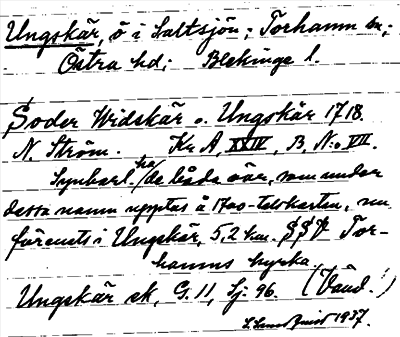 Ungskär, ö i Saltsjön; Torhamn sn;
Östra hd; Blekinge l.
Söder Widskär o. Ungskär 1718.
N. Ström. Kr A, XXIV, B, N:o VII.
Synbarl. de båda öar, som under
detta namn upptas å 1700-talskartan, nu
förenats i Ungskär, 5,2 km. Tor-
hamns kyrka.
Ungskär ek, G. 11, Sj: 96. (Vänd!)
1937.